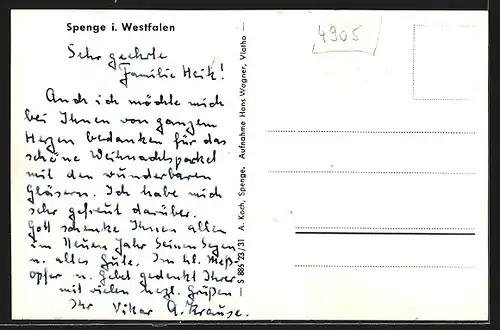 Spenge i. Westfalen
4905
Sehr geehrte
Familie Heitz!
Auch ich möchte mich
bei Ihnen von ganzem
Herzen bedanken für das
schöne Weihnachtspacket
mit den wunderbaren
Gläsern. Ich habe mich
sehr gefreut darüber.
Gott schenke Ihnen allen
im Neuen Jahr Seinen Segen
u. alles Gute. Im hl. Meß-
opfer u. Gebet gedenkt Ihrer
mit vielen herzl. Grüßen
Ihr Vikar A. Krause.
S 886 23/31 A. Koch, Spenge. Aufnahme Hans Wagner, Vlotho